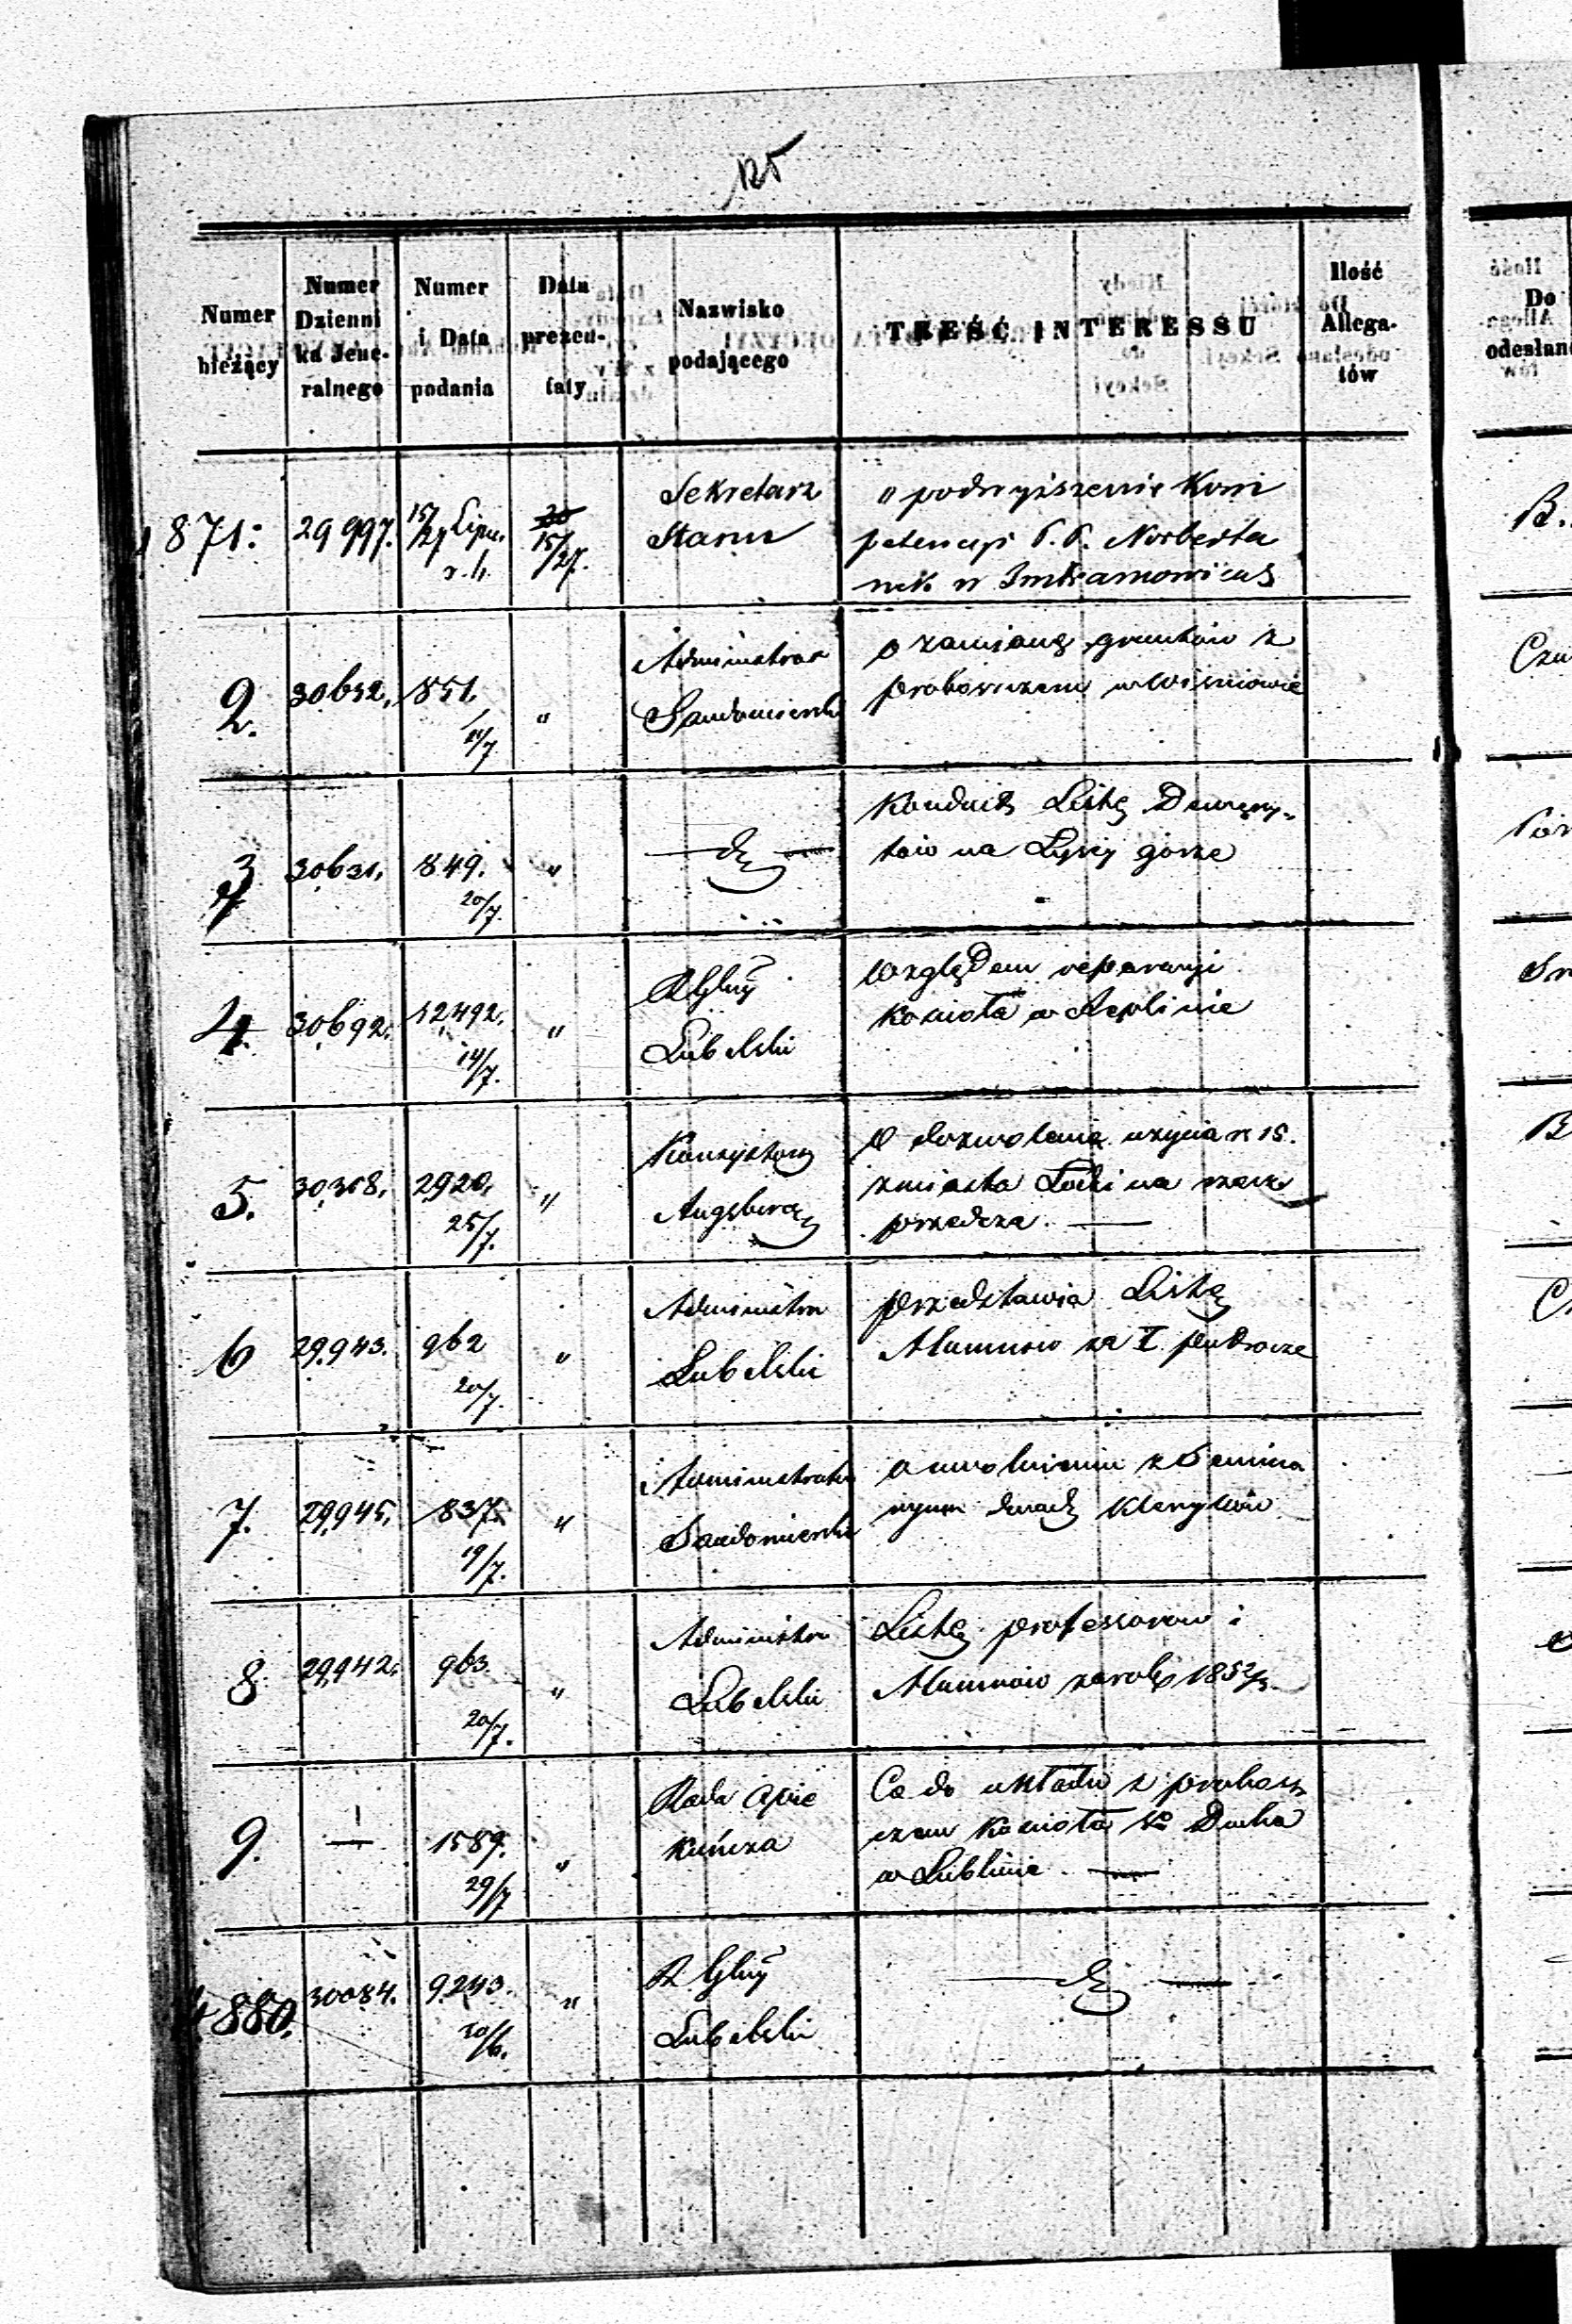 125
Numer bieżący
Numer Dzienni ka Jene- ralnego
Numer i Data podania
Data prezen- taty
Nazwisko podającego
TREŚĆ INTERESSU
Ilość Allega- tów
Do odesłan
871. 29997. 15/27 Lipu. r.b. 15/27. Sekretarz
Stanu
o podwyższenie Kom
petencyi P.P. Norberta
nek w Imbramowicach
B.
2. 30632. 851. "
Administrator
Sandomierski
o zamianę gruntów z
proboszczem w Wiśniowie
3 30631. 849. 20/7. "
—d°—
Konduit Listę Demery-
tów na Łysej górze
4. 30692. 12492. 14/7. "
R. Gbny
Lubelski
Względem reparacyi
Kościoła w
5. 30318. 2920. 25/7. "
Konsystorz
Augsburg
O dozwolenie użycia rs 15.
z miasta Łodzi na
6 29943. 962 20/7. "
Administra
Lubelski
przedstawia Listę
Alumnów za I. półrocze
7. 29945. 837. 19/7. "
Administrator
Sandomierski
o uwolnieniu z Semina
ryum dwóch Kleryków
8 29942. 963. 20/7. "
Administra
Lubelski
Listę professorów i
Alumnów za rok 1852/3.
9. — 1589. 29/7 "
Rada Opie
kuńcza
Co do układu z probosz
czem Kościoła Sgo Ducha
w Lublinie. —
880. 30084. 9243. 30/6. "
R. Gbny
Lubelski
—d°—